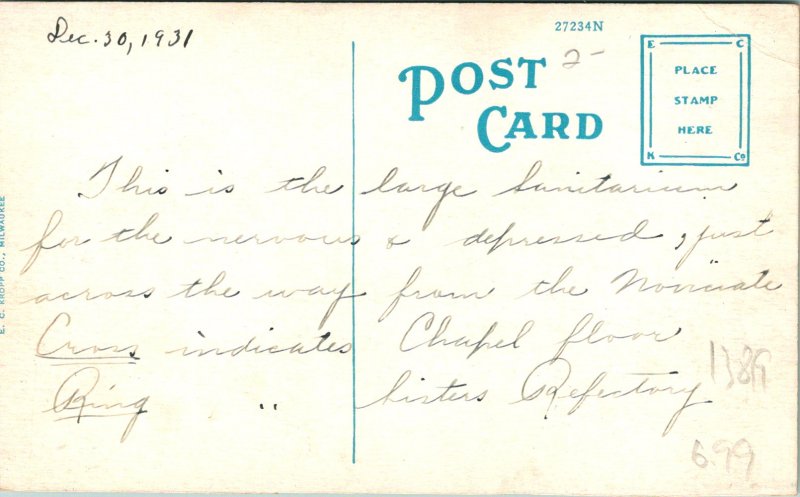 Dec. 30, 1931
27234N
2-
POST
CARD
E C
PLACE
STAMP
HERE
K Co
This is the large Sanitarium
for the nervous & depressed, just
across the way from the Noviciate
Cross indicates Chapel floor
Ring " Sisters Refectory
1389
6.99
E. C. KROPP CO., MILWAUKEE